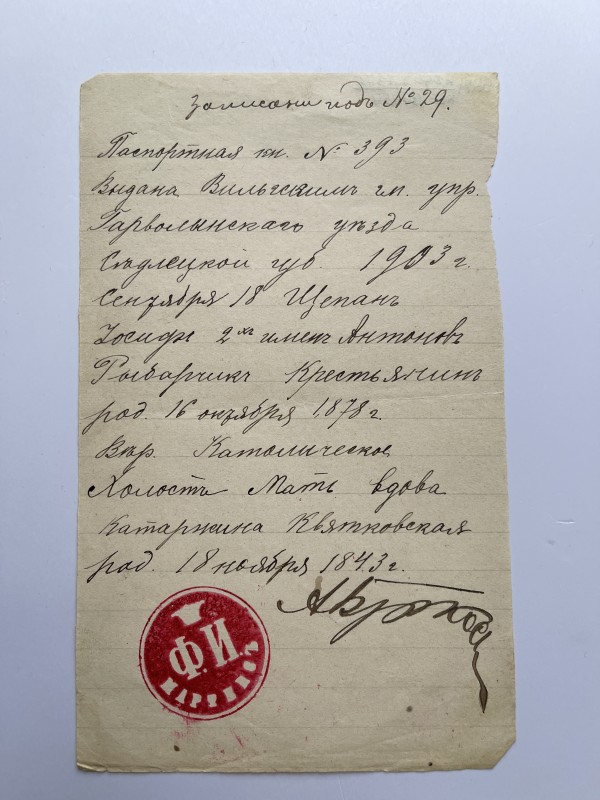 Записани подъ № 29.
Паспортная кн. № 393
Выдана Вильгскимъ гм. упр.
Гарволынскаго уѣзда
Сѣдлецкой губ. 1903 г.
Сентября 18 Щепанъ
Іосифъ 2хъ именъ Антоновъ
Рыбарчикъ Крестьянинъ
род. 16 октября 1878 г.
Вѣр. Католическое
Холостъ Мать вдова
Катаржина Квятковская
род. 18 ноября 1843 г.
Ф. И.